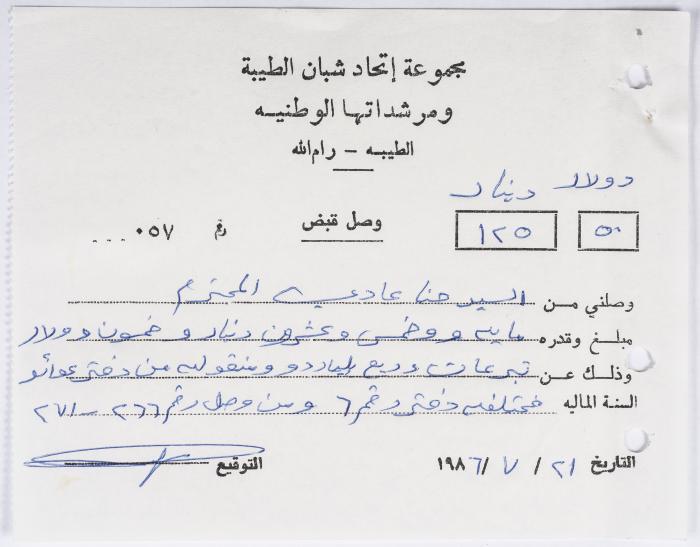 مجموعة إتحاد شبان الطيبة
ومرشداتها الوطنيه
الطيبه - رام الله
دولار دينار
٥٠ ١٢٥
وصل قبض
رقم ٠٥٧
وصلني من السيد حنا عادي المحترم
مبلغ وقدره مايه وخمس وعشرون دينار و خمسون دولار
وذلك عن تبرعات وريع بلياردو ومنقوله من دفتر عوائد
السنة الماليه مختلفه دفتر رقم ٦ ومن وصل رقم ٢٦٦ - ٢٧١
التاريخ ٢١ / ٧ / ١٩٨٦ التوقيع